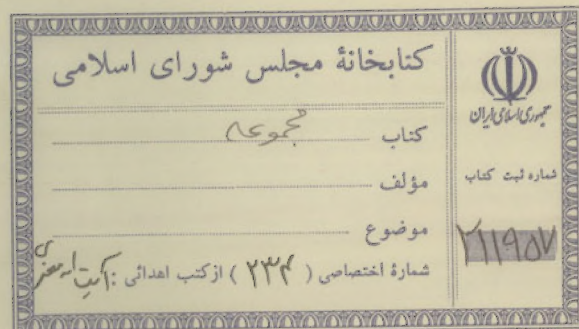 کتابخانهٔ مجلس شورای اسلامی
کتاب مجموعه
مؤلف
موضوع
شمارهٔ اختصاصی ( ۲۳۴ ) از کتب اهدائی : آیت اله
جمهوری اسلامی ایران
شماره ثبت کتاب
۲۱۱۹۵۷